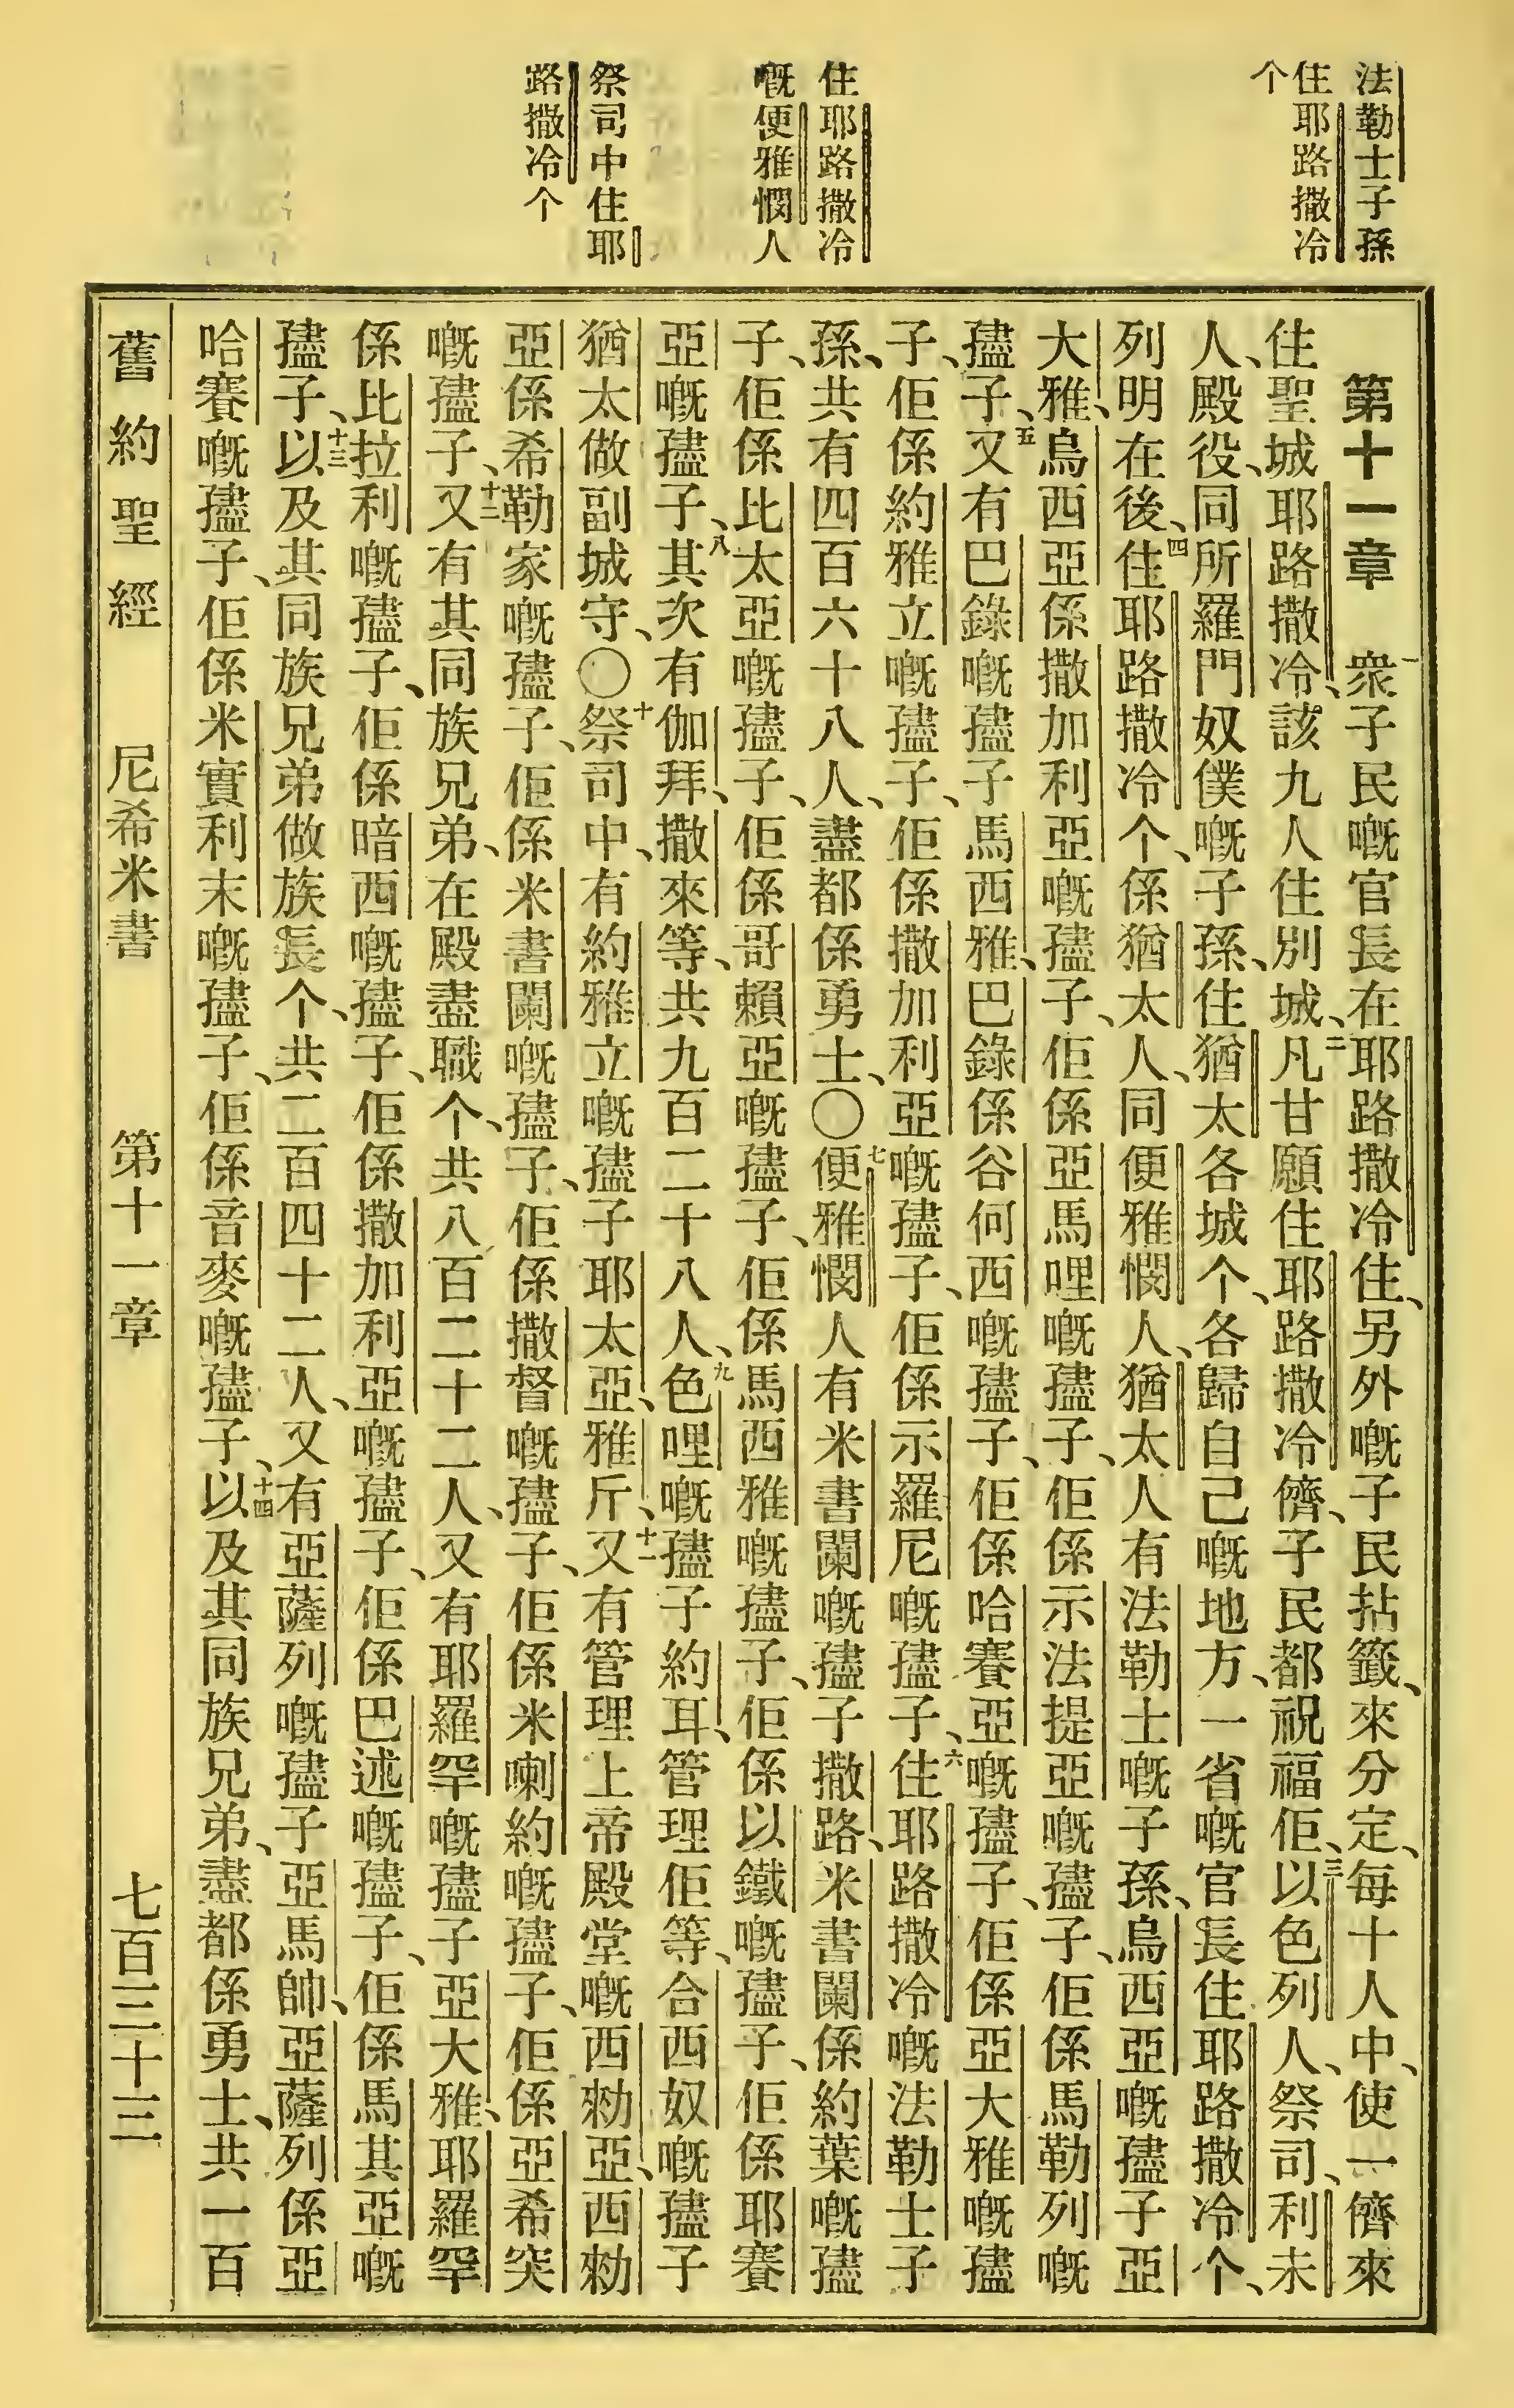 法勒士子孫
住耶路撒冷
个
住耶路撒冷
嘅便雅憫人
祭司中住耶
路撒冷个
第十一章　一衆子民嘅官長在耶路撒冷住、另外嘅子民拈籤、來分定、每十人中、使一儕來
住聖城耶路撒冷、該九人住別城、二凡甘願住耶路撒冷儕、子民都祝福佢、三以色列人、祭司、利未
人、殿役、同所羅門奴僕嘅子孫、住猶太各城个、各歸自己嘅地方、一省嘅官長住耶路撒冷个、
列明在後、四住耶路撒冷个、係猶太人、同便雅憫人、猶太人有法勒士嘅子孫、烏西亞嘅孻子亞
大雅、烏西亞係撒加利亞嘅孻子、佢係亞馬哩嘅孻子、佢係示法提亞嘅孻子、佢係馬勒列嘅
孻子、五又有巴錄嘅孻子馬西雅、巴錄係谷何西嘅孻子、佢係哈賽亞嘅孻子、佢係亞大雅嘅孻
子、佢係約雅立嘅孻子、佢係撒加利亞嘅孻子、佢係示羅尼嘅孻子、六住耶路撒冷嘅法勒士子
孫、共有四百六十八人、盡都係勇士、〇七便雅憫人有米書闌嘅孻子撒路、米書闌係約葉嘅孻
子、佢係比太亞嘅孻子、佢係哥賴亞嘅孻子、佢係馬西雅嘅孻子、佢係以鐵嘅孻子、佢係耶賽
亞嘅孻子、八其次有伽拜、撒來等、共九百二十八人、九色哩嘅孻子約耳、管理佢等、合西奴嘅孻子
猶太做副城守、〇十祭司中、有約雅立嘅孻子耶太亞、雅斤、十一又有管理上帝殿堂嘅西勑亞、西勑
亞係希勒家嘅孻子、佢係米書闌嘅孻子、佢係撒督嘅孻子、佢係米喇約嘅孻子、佢係亞希突
嘅孻子、十二又有其同族兄弟、在殿盡職个、共八百二十二人、又有耶羅罕嘅孻子亞大雅、耶羅罕
係比拉利嘅孻子、佢係暗西嘅孻子、佢係撒加利亞嘅孻子、佢係巴述嘅孻子、佢係馬其亞嘅
孻子、十三以及其同族兄弟做族長个、共二百四十二人、又有亞薩列嘅孻子亞馬帥、亞薩列係亞
哈賽嘅孻子、佢係米實利末嘅孻子、佢係音麥嘅孻子、十四以及其同族兄弟、盡都係勇士、共一百
舊約聖經　尼希米書　第十一章　七百三十三